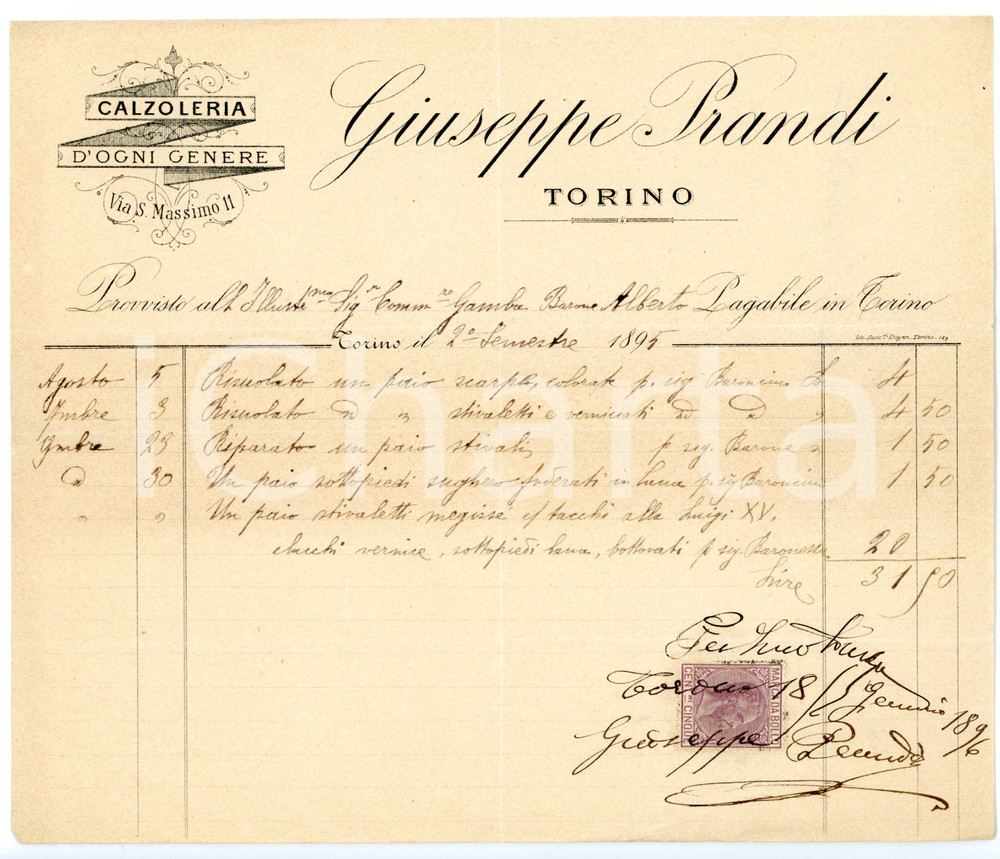 CALZOLERIA
D'OGNI GENERE
Via S. Massimo 11
Giuseppe Prandi
TORINO
Provviste all' Illustrma Sigr Commre Gamba Barone Alberto Pagabile in Torino
Torino il 2o Semestre 1895
Agosto 5 Risuolato un paio scarpe colorate p. sig Baroncino L. 4
7mbre 3 Risuolato D " stivaletti e verniciati D D " 4 50
9mbre 23 Riparato un paio stivali p sig. Barone " 1 50
D 30 Un paio sottopiedi sughero foderati in lana p. sig Baroncino 1 50
" " Un paio stivaletti megissé c/ tacchi alla Luigi XV,
clacchi vernice, sottopiedi lana, bottonati p sig. Baronessa 20
Lire 31 50
Per Saldo
MARCA DA BOLLO
CENT. MI CINQUE
Torino 18 Gennaio 1896
Giuseppe Prandi
iCharta